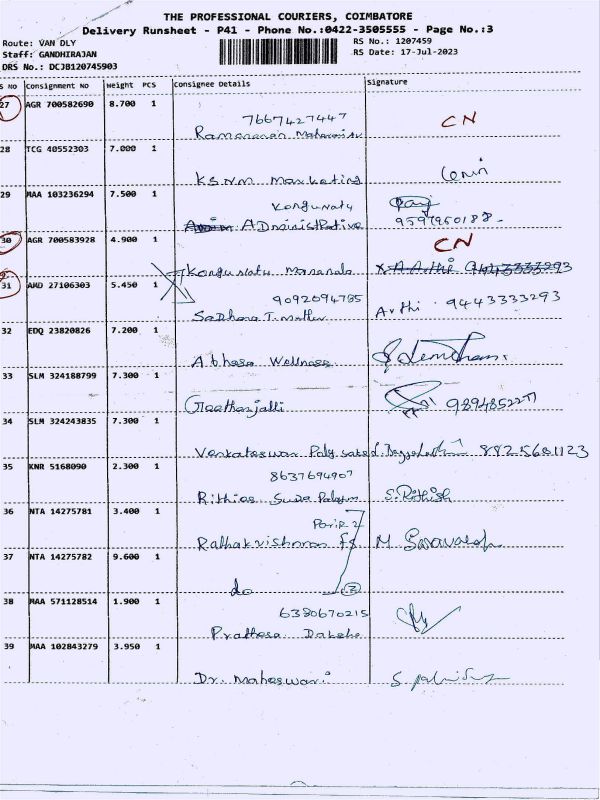 THE PROFESSIONAL COURIERS, COIMBATORE
Delivery Runsheet - P41 - Phone No.:0422-3505555 - Page No.:3
Route: VAN DLY RS No.: 1207459
Staff: GANDHIRAJAN RS Date: 17-Jul-2023
DRS No.: DCJB120745903
S No Consignment No Weight PCS Consignee Details Signature
27 AGR 700582690 8.700 1
7667427447 CN
28 TCG 40552303 7.000 1
KSNM Marketing
29 MAA 103236294 7.500 1
Kongunatu
ADministrative
30 AGR 700583928 4.900 1 CN
Kongunatu
31 AMD 27106303 5.450 1
9092094785 Arthi 9443333293
32 EDQ 23820826 7.200 1
Abhasa Wellness
33 SLM 324188799 7.300 1
Geethanjalli
34 SLM 324243835 7.300 1
Venkateswar 8825681123
35 KNR 5168090 2.300 1
8637694907
36 NTA 14275781 3.400 1
Rathakrishnan M
37 NTA 14275782 9.600 1
do 2
38 MAA 571128514 1.900 1
6380670215
39 MAA 102843279 3.950 1
Dr. Maheswari